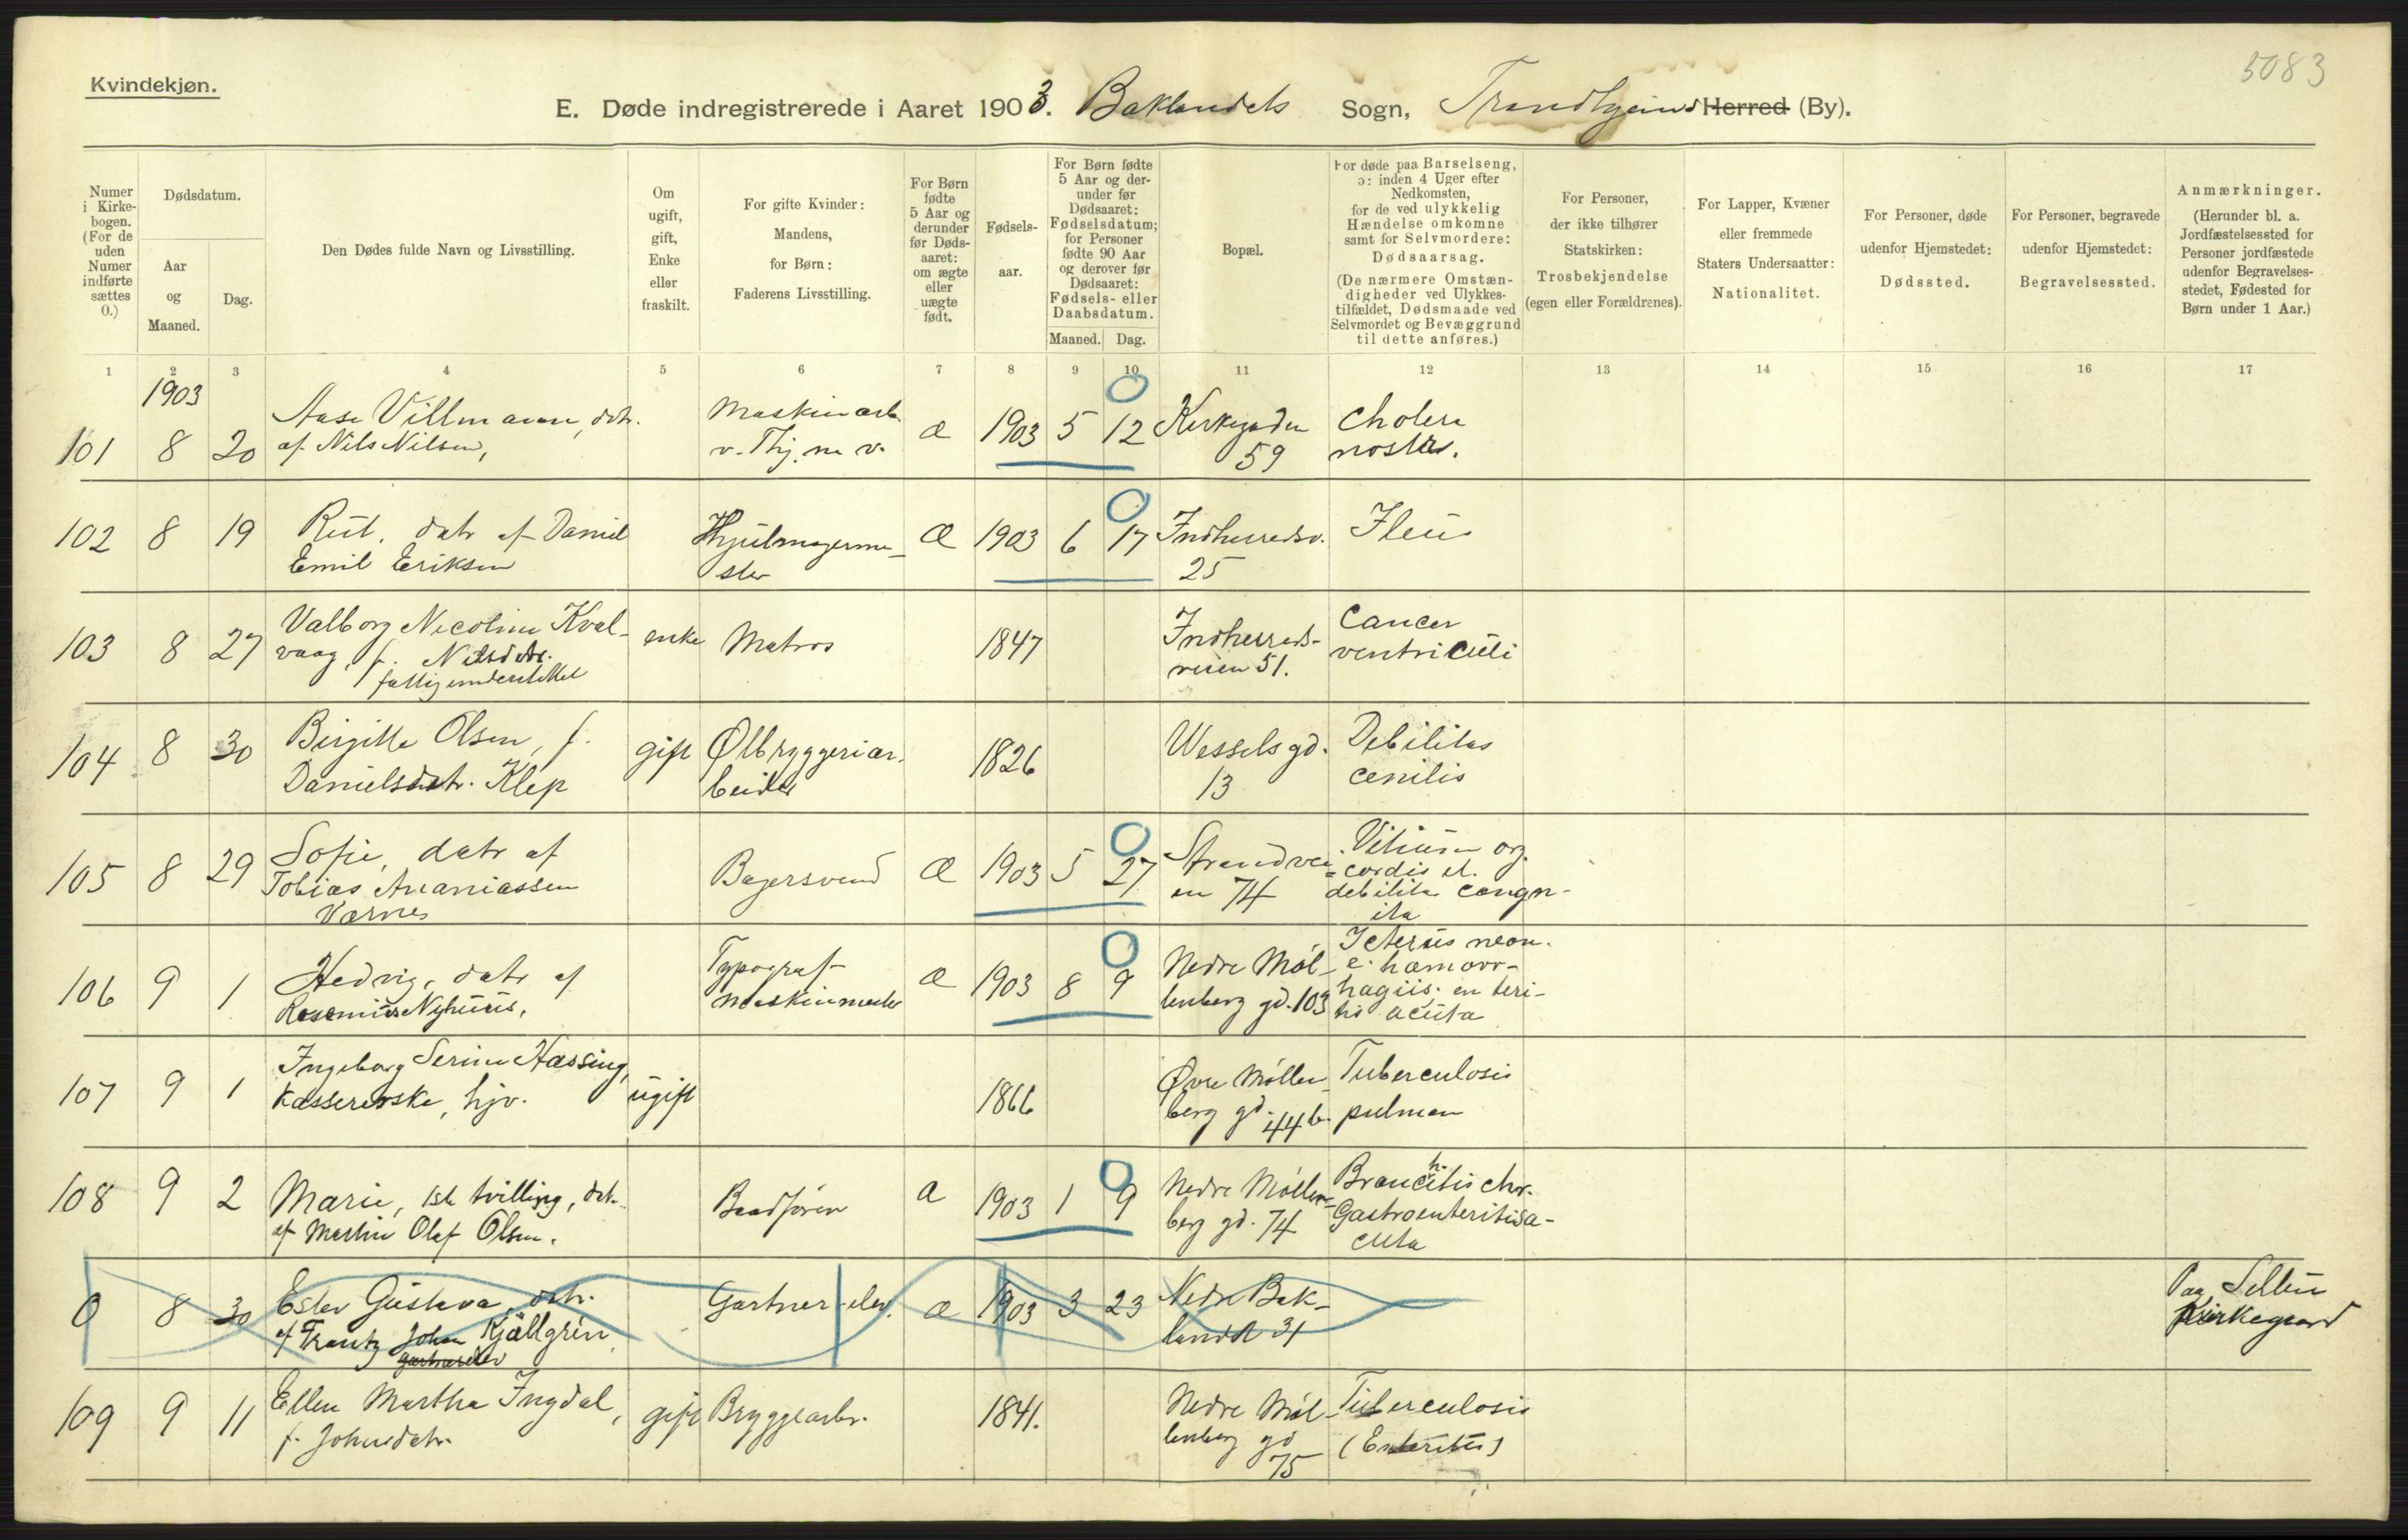 Kvindekjøn.
5083
E. Døde indregistrerede i Aaret 1903. Baklandets Sogn, Trondhjems Herred (By).
Numer i Kirkebogen. (For de uden Numer indførte sættes 0.)
Dødsdatum.
Aar og Maaned.
Dag.
Den Dødes fulde Navn og Livsstilling.
Om ugift, gift, Enke eller fraskilt.
For gifte Kvinder: Mandens, for Børn: Faderens Livsstilling.
For Børn fødte 5 Aar og derunder før Dødsaaret: om ægte eller uægte født.
Fødselsaar.
For Børn fødte 5 Aar og derunder før Dødsaaret: Fødselsdatum; for Personer fødte 90 Aar og derover før Dødsaaret: Fødsels- eller Daabsdatum.
Maaned. Dag.
Bopæl.
For døde paa Barselseng, ɔ: inden 4 Uger efter Nedkomsten, for de ved ulykkelig Hændelse omkomne samt for Selvmordere: Dødsaarsag. (De nærmere Omstændigheder ved Ulykkestilfældet, Dødsmaade ved Selvmordet og Bevæggrund til dette anføres.)
For Personer, der ikke tilhører Statskirken: Trosbekjendelse (egen eller Forældrenes).
For Lapper, Kvæner eller fremmede Staters Undersaatter: Nationalitet.
For Personer, døde udenfor Hjemstedet: Dødssted.
For Personer, begravede udenfor Hjemstedet: Begravelsessted.
Anmærkninger. (Herunder bl. a. Jordfæstelsessted for Personer jordfæstede udenfor Begravelsesstedet, Fødested for Børn under 1 Aar.)
1 2 3 4 5 6 7 8 9 10 11 12 13 14 15 16 17
1903
101 8 20 Aase Villmann, datr. af Nils Nilsen, Maskinarb. v. Thj. m v. æ 1903 5 12 Kirkegaden 59 Cholera nostras.
102 8 19 Rut, datr af Daniel Emil Eriksen Hjulmagermester Æ 1903 6 17 Indherredsv. 25 Ileus
103 8 27 Valborg Nicoline Kvalvaag, f. Nilsdatr. fattigunderstøttet enke Matros 1847 Indherredsveien 51. Cancer ventriculi
104 8 30 Birgitte Olsen, f. Danielsdatr. Klep gift Ølbryggeriarbeider 1826 Wesselsgd. 13 Debilitas cenilis
105 8 29 Sofie, datr af Tobias Ananiassen Værnes Bagersvend Æ 1903 5 27 Strandveien 74 Vitium org. cordis et. debilitas congnita
106 9 1 Hedvig, datr af Nyhuus, Typograf Maskinmester Æ 1903 8 9 Nedre Møllenberg gd. 103 Icterus neon. e. hæmorrhagiis; enteritis acuta
107 9 1 Ingeborg Serine Hassing, kassererske, hjv. ugift 1866 Øvre Møllenberg gd. 44 b. Tuberculosis pulmon
108 9 2 Marie, 1ste tvilling, datr. af Martin Olaf Olsen. Baadfører æ 1903 1 9 Nedre Møllenberg gd. 74 Bronchitis chr. Gastroenteritis acuta
0 8 30 Ester Gustava, datr. af Frantz Johan Kjällgrén, gartnerelev Gartner-elev. æ 1903 3 23 Nedre Baklandet 31 Paa kirkegaard
109 9 11 Ellen Martha Ingdal, f. Johnsdatr. gift Bryggearbr. 1841. Nedre Møllenberg gd 75 Tuberculosis (Enteritis)